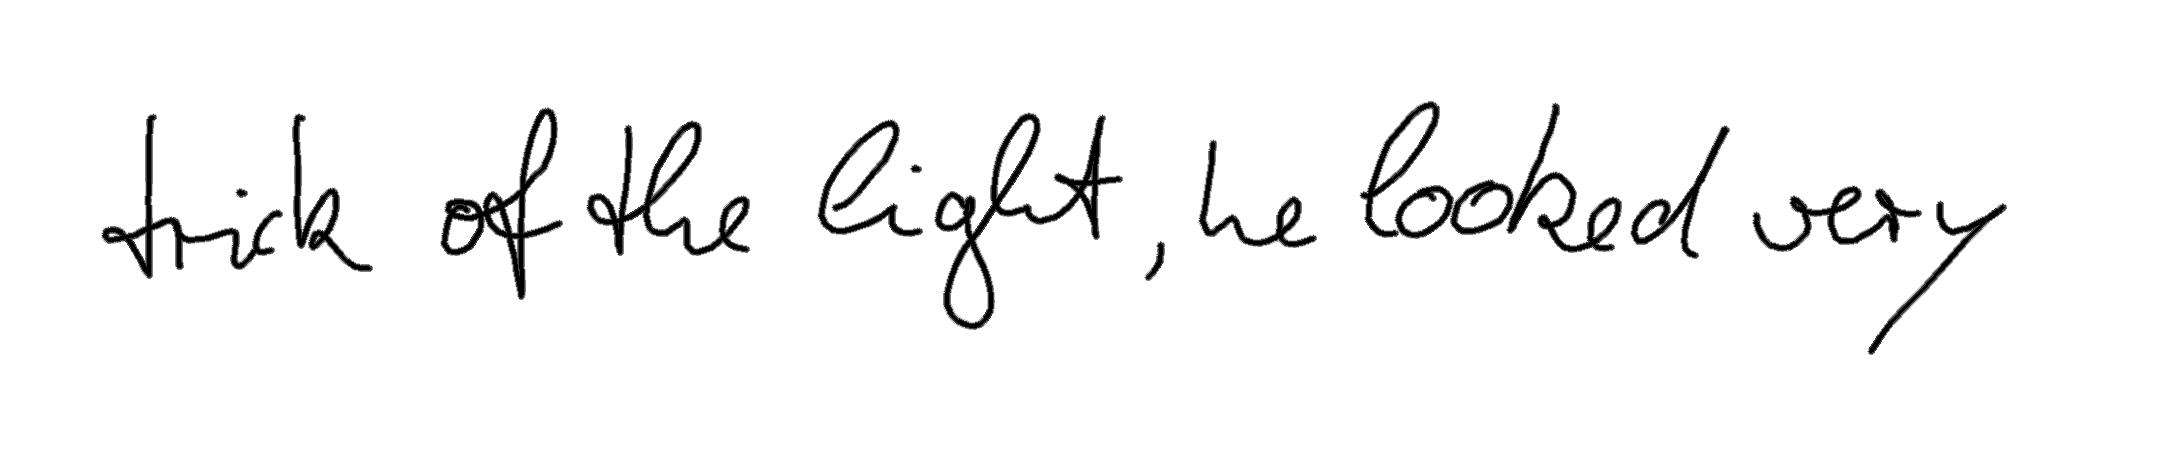 trick of the light, he looked very